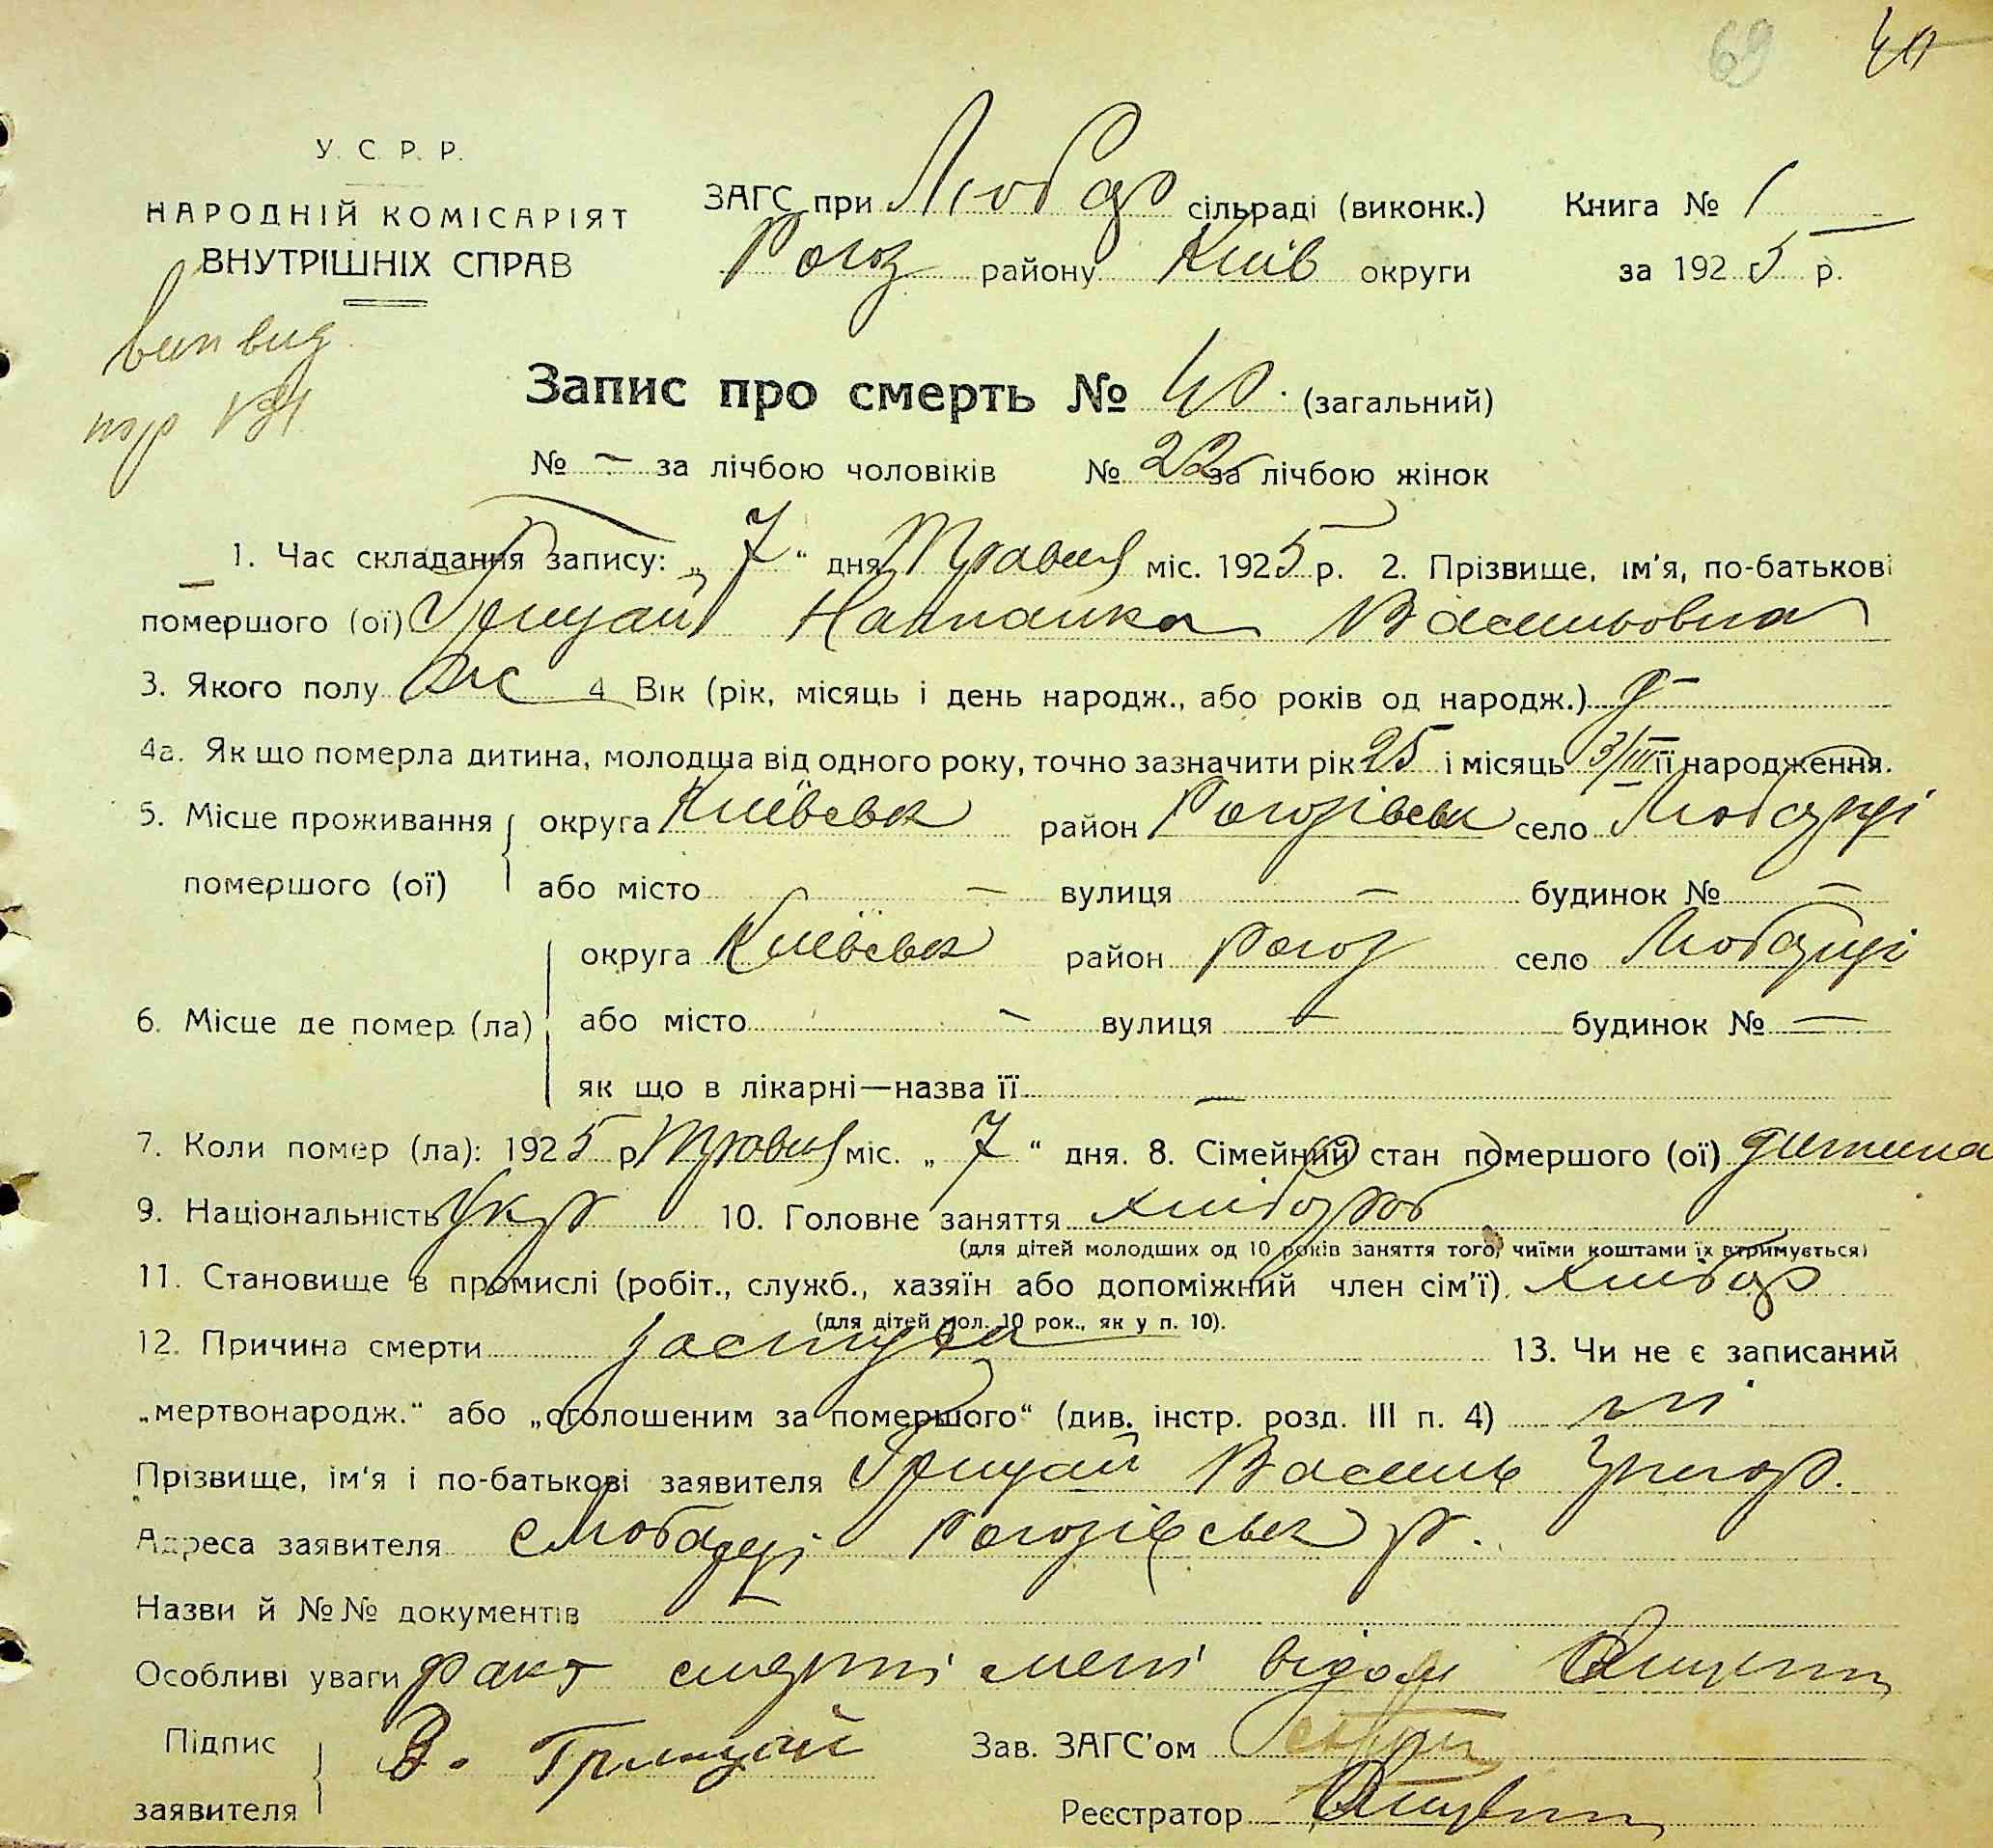 69 40
У. С. Р. Р.
НАРОДНІЙ КОМІСАРІЯТ
ВНУТРІШНІХ СПРАВ
ЗАГС при Любар сільраді (виконк.) Книга № 1
Рогоз району Київ округи за 1925 р.
Запис про смерть № 40 (загальний)
№ — за лічбою чоловіків № 22 за лічбою жінок
1. Час складання запису: „ 7 “ дня Травня міс. 1925 р. 2. Прізвище, ім'я, по-батькові
помершого (ої) Грицай Наталка Васильовна
3. Якого полу жс 4 Вік (рік, місяць і день народж., або років од народж.)
4а. Як що померла дитина, молодша від одного року, точно зазначити рік 25 і місяць 3/III її народження.
5. Місце проживання округа Київськ район Рогозівськ село Любарці
помершого (ої) або місто — вулиця — будинок № —
округа Київськ район Рогоз село Любарці
6. Місце де помер (ла) або місто — вулиця — будинок № —
як що в лікарні—назва її —
7. Коли помер (ла): 1925 р Травня міс. „ 7 “ дня. 8. Сімейний стан помершого (ої) дитина
9. Національність Укр 10. Головне заняття хлібороб
(для дітей молодших од 10 років заняття того, чиїми коштами їх втримується)
11. Становище в промислі (робіт., служб., хазяїн або допоміжний член сім'ї). хлібор
(для дітей мол. 10 рок., як у п. 10).
12. Причина смерти застуда 13. Чи не є записаний
„мертвонародж.“ або „оголошеним за помершого“ (див. інстр. розд. III п. 4) ні
Прізвище, ім'я і по-батькові заявителя Грицай Василь Григор.
Адреса заявителя с Любарці Рогозівськ р.
Назви й №№ документів
Особливі уваги факт смерті мені відом
Підпис В. Грицай Зав. ЗАГС'ом
заявителя Реєстратор